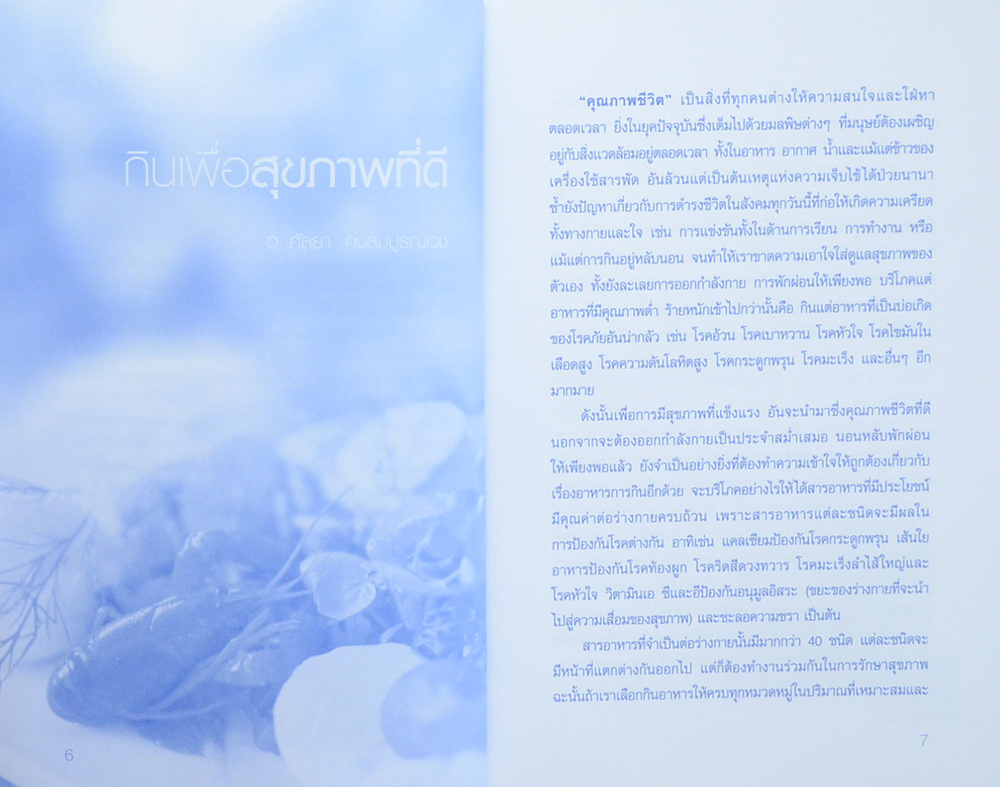 กินเพื่อสุขภาพที่ดี
อ. ศัลยา คงสมบูรณ์เวช
6
“คุณภาพชีวิต” เป็นสิ่งที่ทุกคนต่างให้ความสนใจและใฝ่หา
ตลอดเวลา ยิ่งในยุคปัจจุบันซึ่งเต็มไปด้วยมลพิษต่างๆ ที่มนุษย์ต้องเผชิญ
อยู่กับสิ่งแวดล้อมอยู่ตลอดเวลา ทั้งในอาหาร อากาศ น้ำและแม้แต่ข้าวของ
เครื่องใช้สารพัด อันล้วนแต่เป็นต้นเหตุแห่งความเจ็บไข้ได้ป่วยนานา
ซ้ำยังปัญหาเกี่ยวกับการดำรงชีวิตในสังคมทุกวันนี้ที่ก่อให้เกิดความเครียด
ทั้งทางกายและใจ เช่น การแข่งขันทั้งในด้านการเรียน การทำงาน หรือ
แม้แต่การกินอยู่หลับนอน จนทำให้เราขาดความเอาใจใส่ดูแลสุขภาพของ
ตัวเอง ทั้งยังละเลยการออกกำลังกาย การพักผ่อนให้เพียงพอ บริโภคแต่
อาหารที่มีคุณภาพต่ำ ร้ายหนักเข้าไปกว่านั้นคือ กินแต่อาหารที่เป็นบ่อเกิด
ของโรคภัยอันน่ากลัว เช่น โรคอ้วน โรคเบาหวาน โรคหัวใจ โรคไขมันใน
เลือดสูง โรคความดันโลหิตสูง โรคกระดูกพรุน โรคมะเร็ง และอื่นๆ อีก
มากมาย
ดังนั้นเพื่อการมีสุขภาพที่แข็งแรง อันจะนำมาซึ่งคุณภาพชีวิตที่ดี
นอกจากจะต้องออกกำลังกายเป็นประจำสม่ำเสมอ นอนหลับพักผ่อน
ให้เพียงพอแล้ว ยังจำเป็นอย่างยิ่งที่ต้องทำความเข้าใจให้ถูกต้องเกี่ยวกับ
เรื่องอาหารการกินอีกด้วย จะบริโภคอย่างไรให้ได้สารอาหารที่มีประโยชน์
มีคุณค่าต่อร่างกายครบถ้วน เพราะสารอาหารแต่ละชนิดจะมีผลใน
การป้องกันโรคต่างกัน อาทิเช่น แคลเซียมป้องกันโรคกระดูกพรุน เส้นใย
อาหารป้องกันโรคท้องผูก โรคริดสีดวงทวาร โรคมะเร็งลำไส้ใหญ่และ
โรคหัวใจ วิตามินเอ ซีและอีป้องกันอนุมูลอิสระ (ขยะของร่างกายที่จะนำ
ไปสู่ความเสื่อมของสุขภาพ) และชะลอความชรา เป็นต้น
สารอาหารที่จำเป็นต่อร่างกายนั้นมีมากกว่า 40 ชนิด แต่ละชนิดจะ
มีหน้าที่แตกต่างกันออกไป แต่ก็ต้องทำงานร่วมกันในการรักษาสุขภาพ
ฉะนั้นถ้าเราเลือกกินอาหารให้ครบทุกหมวดหมู่ในปริมาณที่เหมาะสมและ
7